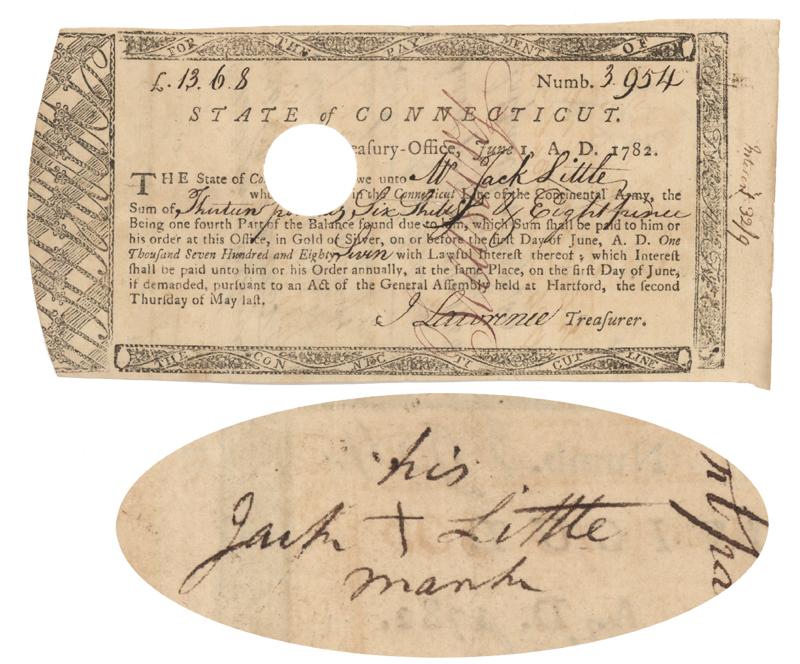 FOR THE PAY MENT OF
£. 13. 6. 8 Numb. 3.954
STATE of CONNECTICUT.
easury-Office, June 1, A. D. 1782.
THE State of Co we unto Mr Jack Little
who in the Connecticut Line of the Continental Army, the
Sum of Thirteen pounds, Six Shills & Eight pence
Being one fourth Part of the Balance found due to him, which Sum shall be paid to him or
his order at this Office, in Gold or Silver, on or before the first Day of June, A. D. One
Thousand Seven Hundred and Eighty Seven with Lawful Interest thereof; which Interest
shall be paid unto him or his Order annually, at the same Place, on the first Day of June,
if demanded, pursuant to an Act of the General Assembly held at Hartford, the second
Thursday of May last.
J Lawrence Treasurer.
THE CON NEC TI CUT LINE
Interest
his
Jack + Little
mark